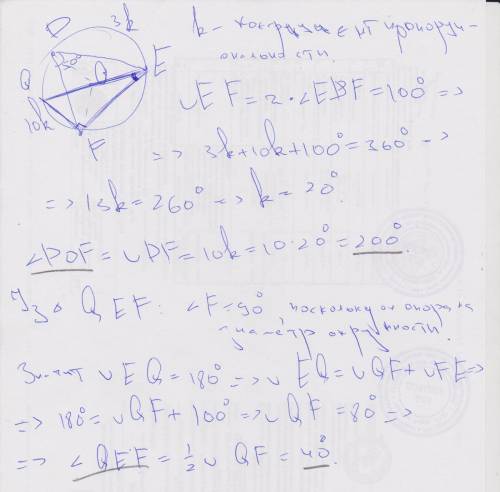 D 3k
E
Q
10k
F
50°
k - коэффициент пропорци-
ональности.
∪EF = 2·∠EDF = 100° =>
=> 3k+10k+100° = 360° =>
=> 13k = 260° => k = 20°.
∠DOF = ∪DF = 10k = 10·20° = 200°.
Из △ QEF: ∠F = 90°, поскольку он опора на
диаметр окружности.
Значит ∪EQ = 180° => ∪EQ = ∪QF + ∪FE =>
=> 180° = ∪QF + 100° => ∪QF = 80° =>
=> ∠QEF = ½ ∪ QF = 40°.